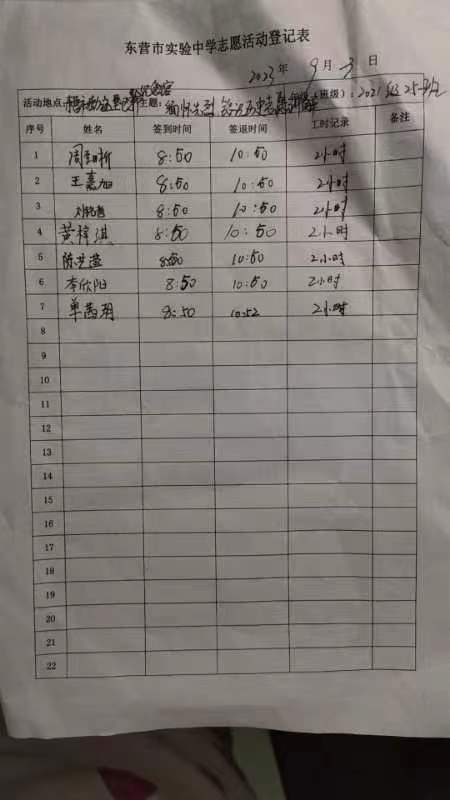 东营市实验中学志愿活动登记表
2023年 9月 3 日
活动地点: 主题: 缅怀先烈 班级): 2021级25班
序号 姓名 签到时间 签退时间 工时记录 备注
1 8:50 10:50 2小时
2 王嘉 8:50 10:50 2小时
3 8:50 10:50 2小时
4 黄梓淇 8:50 10:50 2小时
5 8:50 10:50 2小时
6 李欣阳 8:50 10:50 2小时
7 单茜 8:50 10:52 2小时
8
9
10
11
12
13
14
15
16
17
18
19
20
21
22